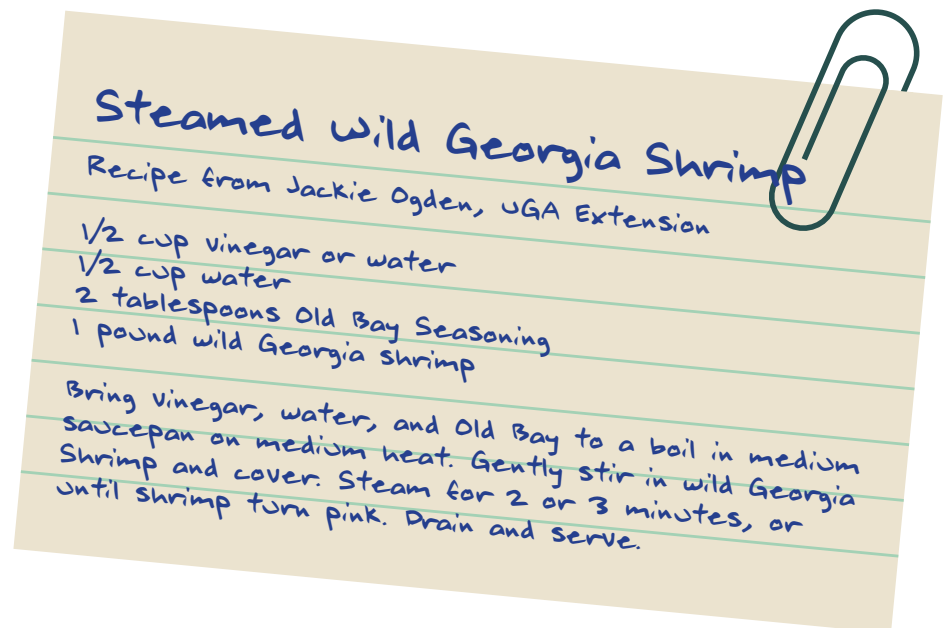 Steamed Wild Georgia Shrimp
Recipe from Jackie Ogden, UGA Extension
1/2 cup vinegar or water
1/2 cup water
2 tablespoons Old Bay Seasoning
1 pound wild Georgia shrimp
Bring vinegar, water, and Old Bay to a boil in medium
saucepan on medium heat. Gently stir in wild Georgia
Shrimp and cover. Steam for 2 or 3 minutes, or
until shrimp turn pink. Drain and serve.